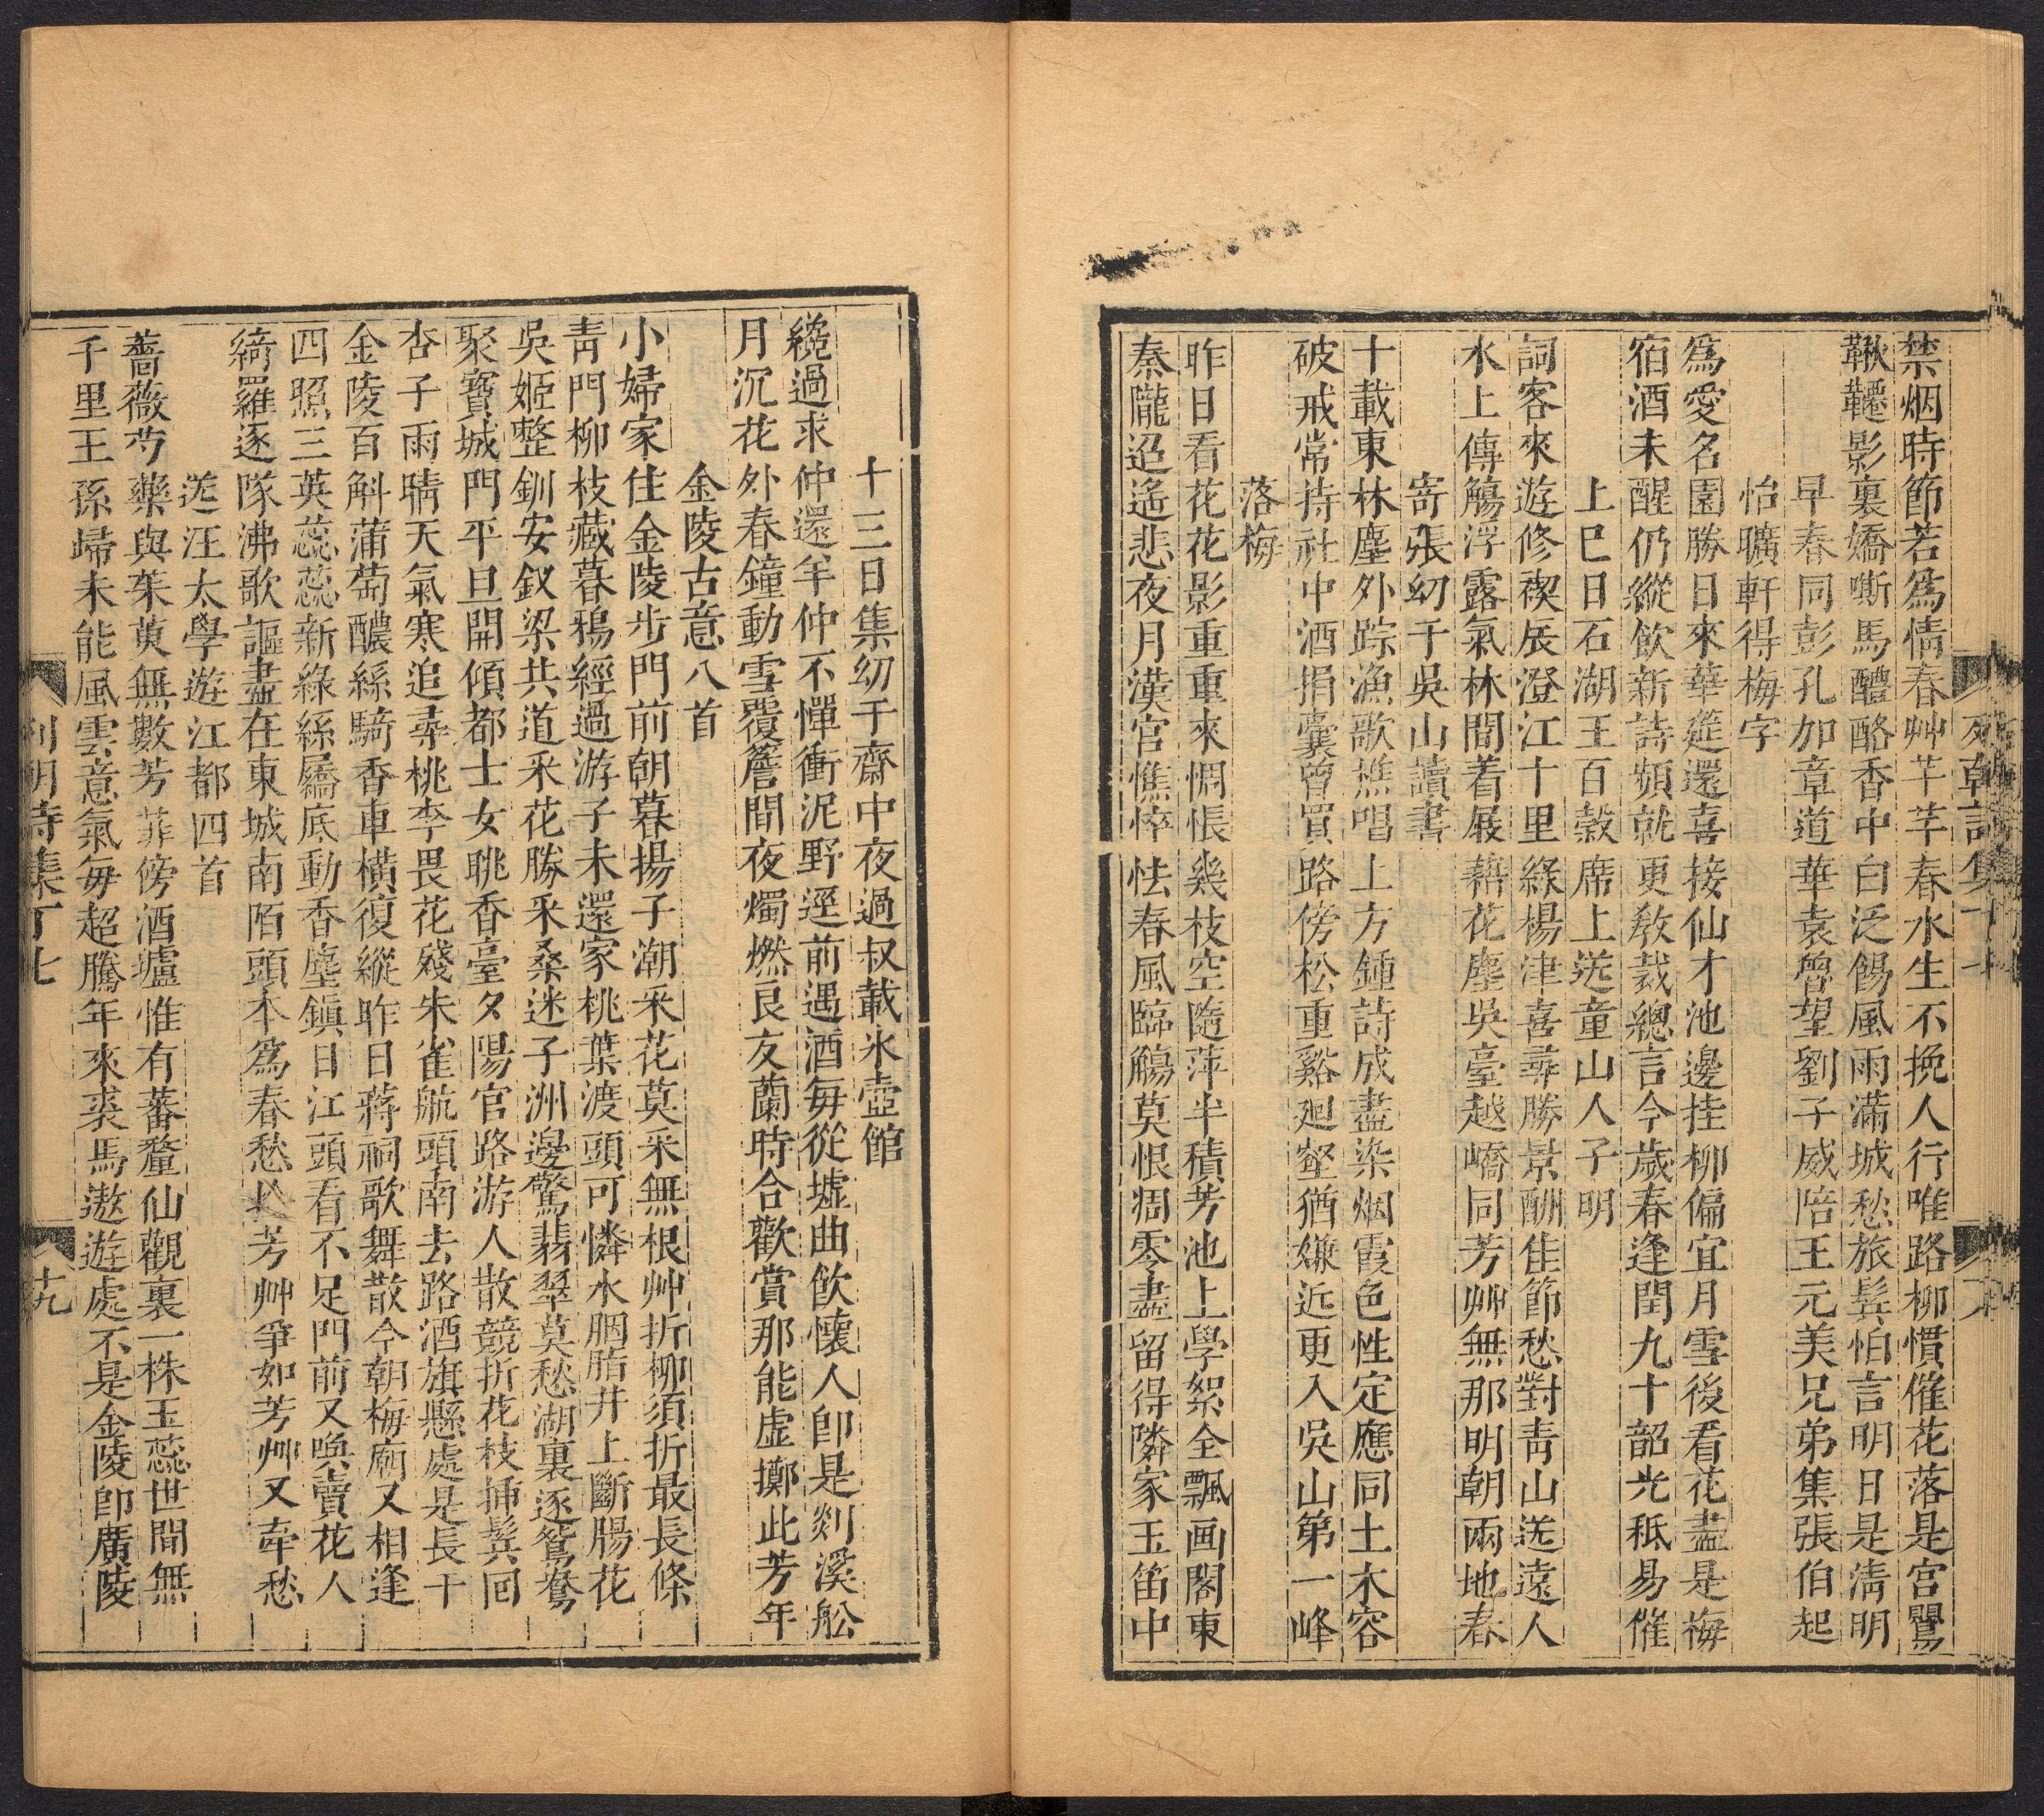 禁烟時節若爲情春艸芊芊春水生不挽人行唯路柳慣催花落是宮鸎
鞦韆影裏嬌嘶馬醴酪香中白泛餳風雨滿城愁旅鬂怕言明日是淸明
早春同彭孔加章道華袁魯望劉子威陪王元美兄弟集張伯起
怡曠軒得梅字
爲愛名園勝日來華筵還喜接仙才池邊挂柳偏宜月雪後看花盡是梅
宿酒未醒仍縱飲新詩頻就更教裁總言今歲春逢閏九十韶光秪易催
上巳日石湖王百榖席上送童山人子明
詞客來遊修禊辰澄江十里綠楊津喜尋勝景酬佳節愁對靑山送遠人
水上傳觴浮露氣林間着屐藉花塵吳臺越嶠同芳艸無那明朝兩地春
寄張幼于吳山讀書
十載東林塵外踪漁歌樵唱上方鍾詩成盡染烟霞色性定應同土木容
破戒常持社中酒捐囊曾買路傍松重谿廻壑猶嫌近更入吳山第一峰
落梅
昨日看花花影重重來惆悵幾枝空隨萍半積芳池上學絮全飄画閣東
秦隴迢遙悲夜月漢宮憔悴怯春風臨觴莫恨凋零盡留得隣家玉笛中
十三日集幼于齋中夜過叔載氷壺館
纔過求仲還羊仲不憚衝泥野逕前遇酒每從墟曲飲懷人卽是剡溪舩
月沉花外春鐘動雪覆簷間夜燭燃良友蘭時合歡賞那能虛擲此芳年
金陵古意八首
小婦家住金陵步門前朝暮揚子潮采花莫采無根艸折柳須折最長條
靑門柳枝藏暮鴉經過游子未還家桃葉渡頭可憐水胭脂井上斷腸花
吳姬整釧安釵梁共道采花勝采桑迷子洲邊驚翡翠莫愁湖裏逐鴛鴦
聚寶城門平旦開傾都士女眺香臺夕陽官路游人散競折花枝揷鬂囘
杏子雨睛天氣寒追尋桃李畏花殘朱雀航頭南去路酒旗懸處是長干
金陵百斛蒲萄醲絲騎香車橫復縱昨日蔣祠歌舞散今朝梅廟又相逢
四照三英蕊蕊新綠絲屩底動香塵鎭日江頭看不足門前又喚賣花人
綺羅逐隊沸歌謳盡在東城南陌頭本爲春愁芳艸爭如芳艸又牽愁
送汪太學遊江都四首
薔薇芍藥與茱萸無數芳菲傍酒壚惟有蕃釐仙觀裏一株玉蕊世間無
千里王孫歸未能風雲意氣每超騰年來裘馬遨遊處不是金陵卽廣陵
列朝詩集丁七
十九